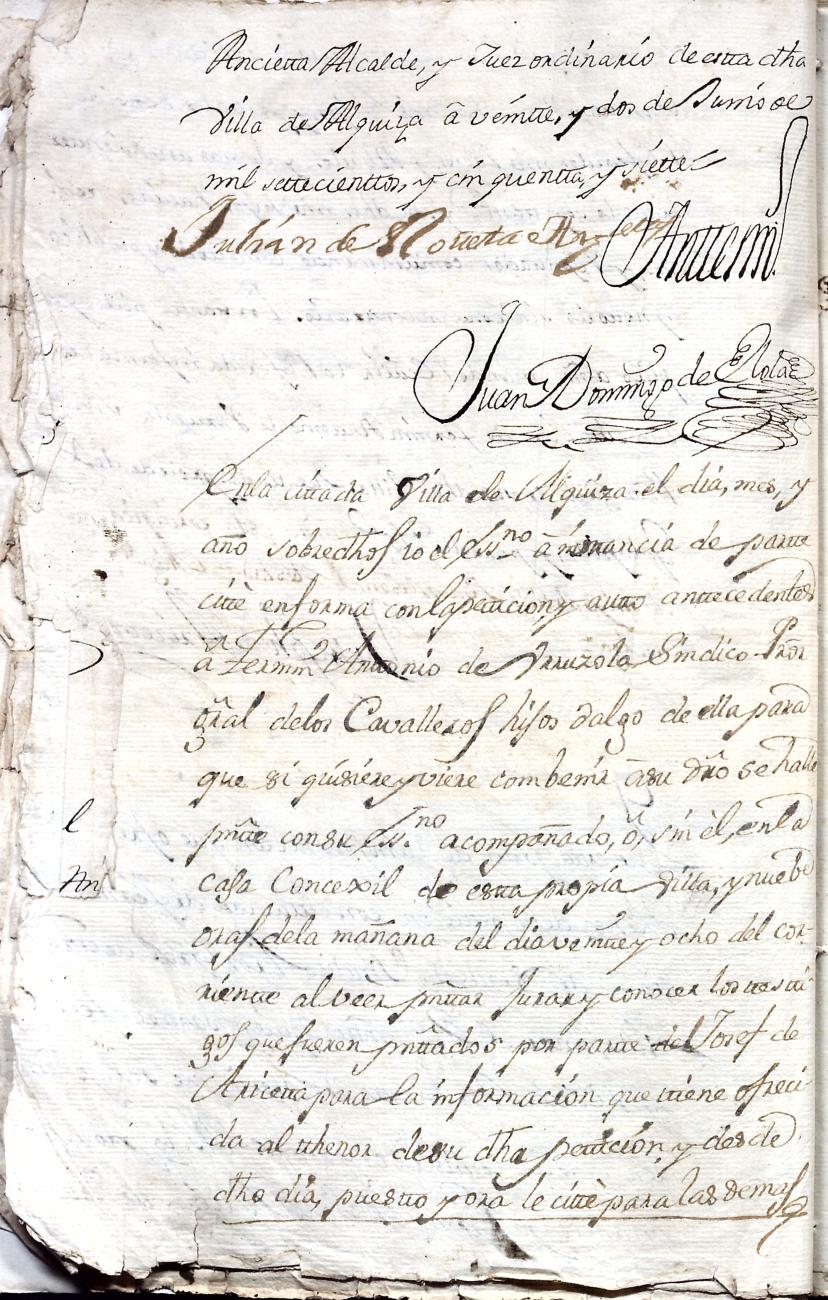 Ancietta Alcalde, y Juez ordinario de estta dha
Villa de Alquiza â veintte, y dos de Junio de
mil settecienttos, y cinquentta, y siette
Julián de Notteta
Antte mi
Juan Domingo de
En la cittada Villa de Alquiza el dia, mes, y
año sobredhos io el Essno â insttancia de partte
citté en forma con la petticion, y autto anttecedenttes
â Fermin Anttonio de Yrruzola Sindico Pror
gral delos Cavalleros hijos dalgo de ella para
que si quisiere y viere combenir â su dro se halle
pntte con su Essno acompañado, ô, sin èl, en la
casa Concexil de estta propia Villa, y nuebe
oras dela mañana del dia veintte y ocho del cor-
rientte al veer pnttar Jurar y conocer los ttesti-
gos que fueren pnttados por partte del Josef de
Aricetta para la informacion que ttiene ofreci-
da al tthenor de su dha petticion, y desde
dho dia, puestto y ora le citté para las demas
l
An